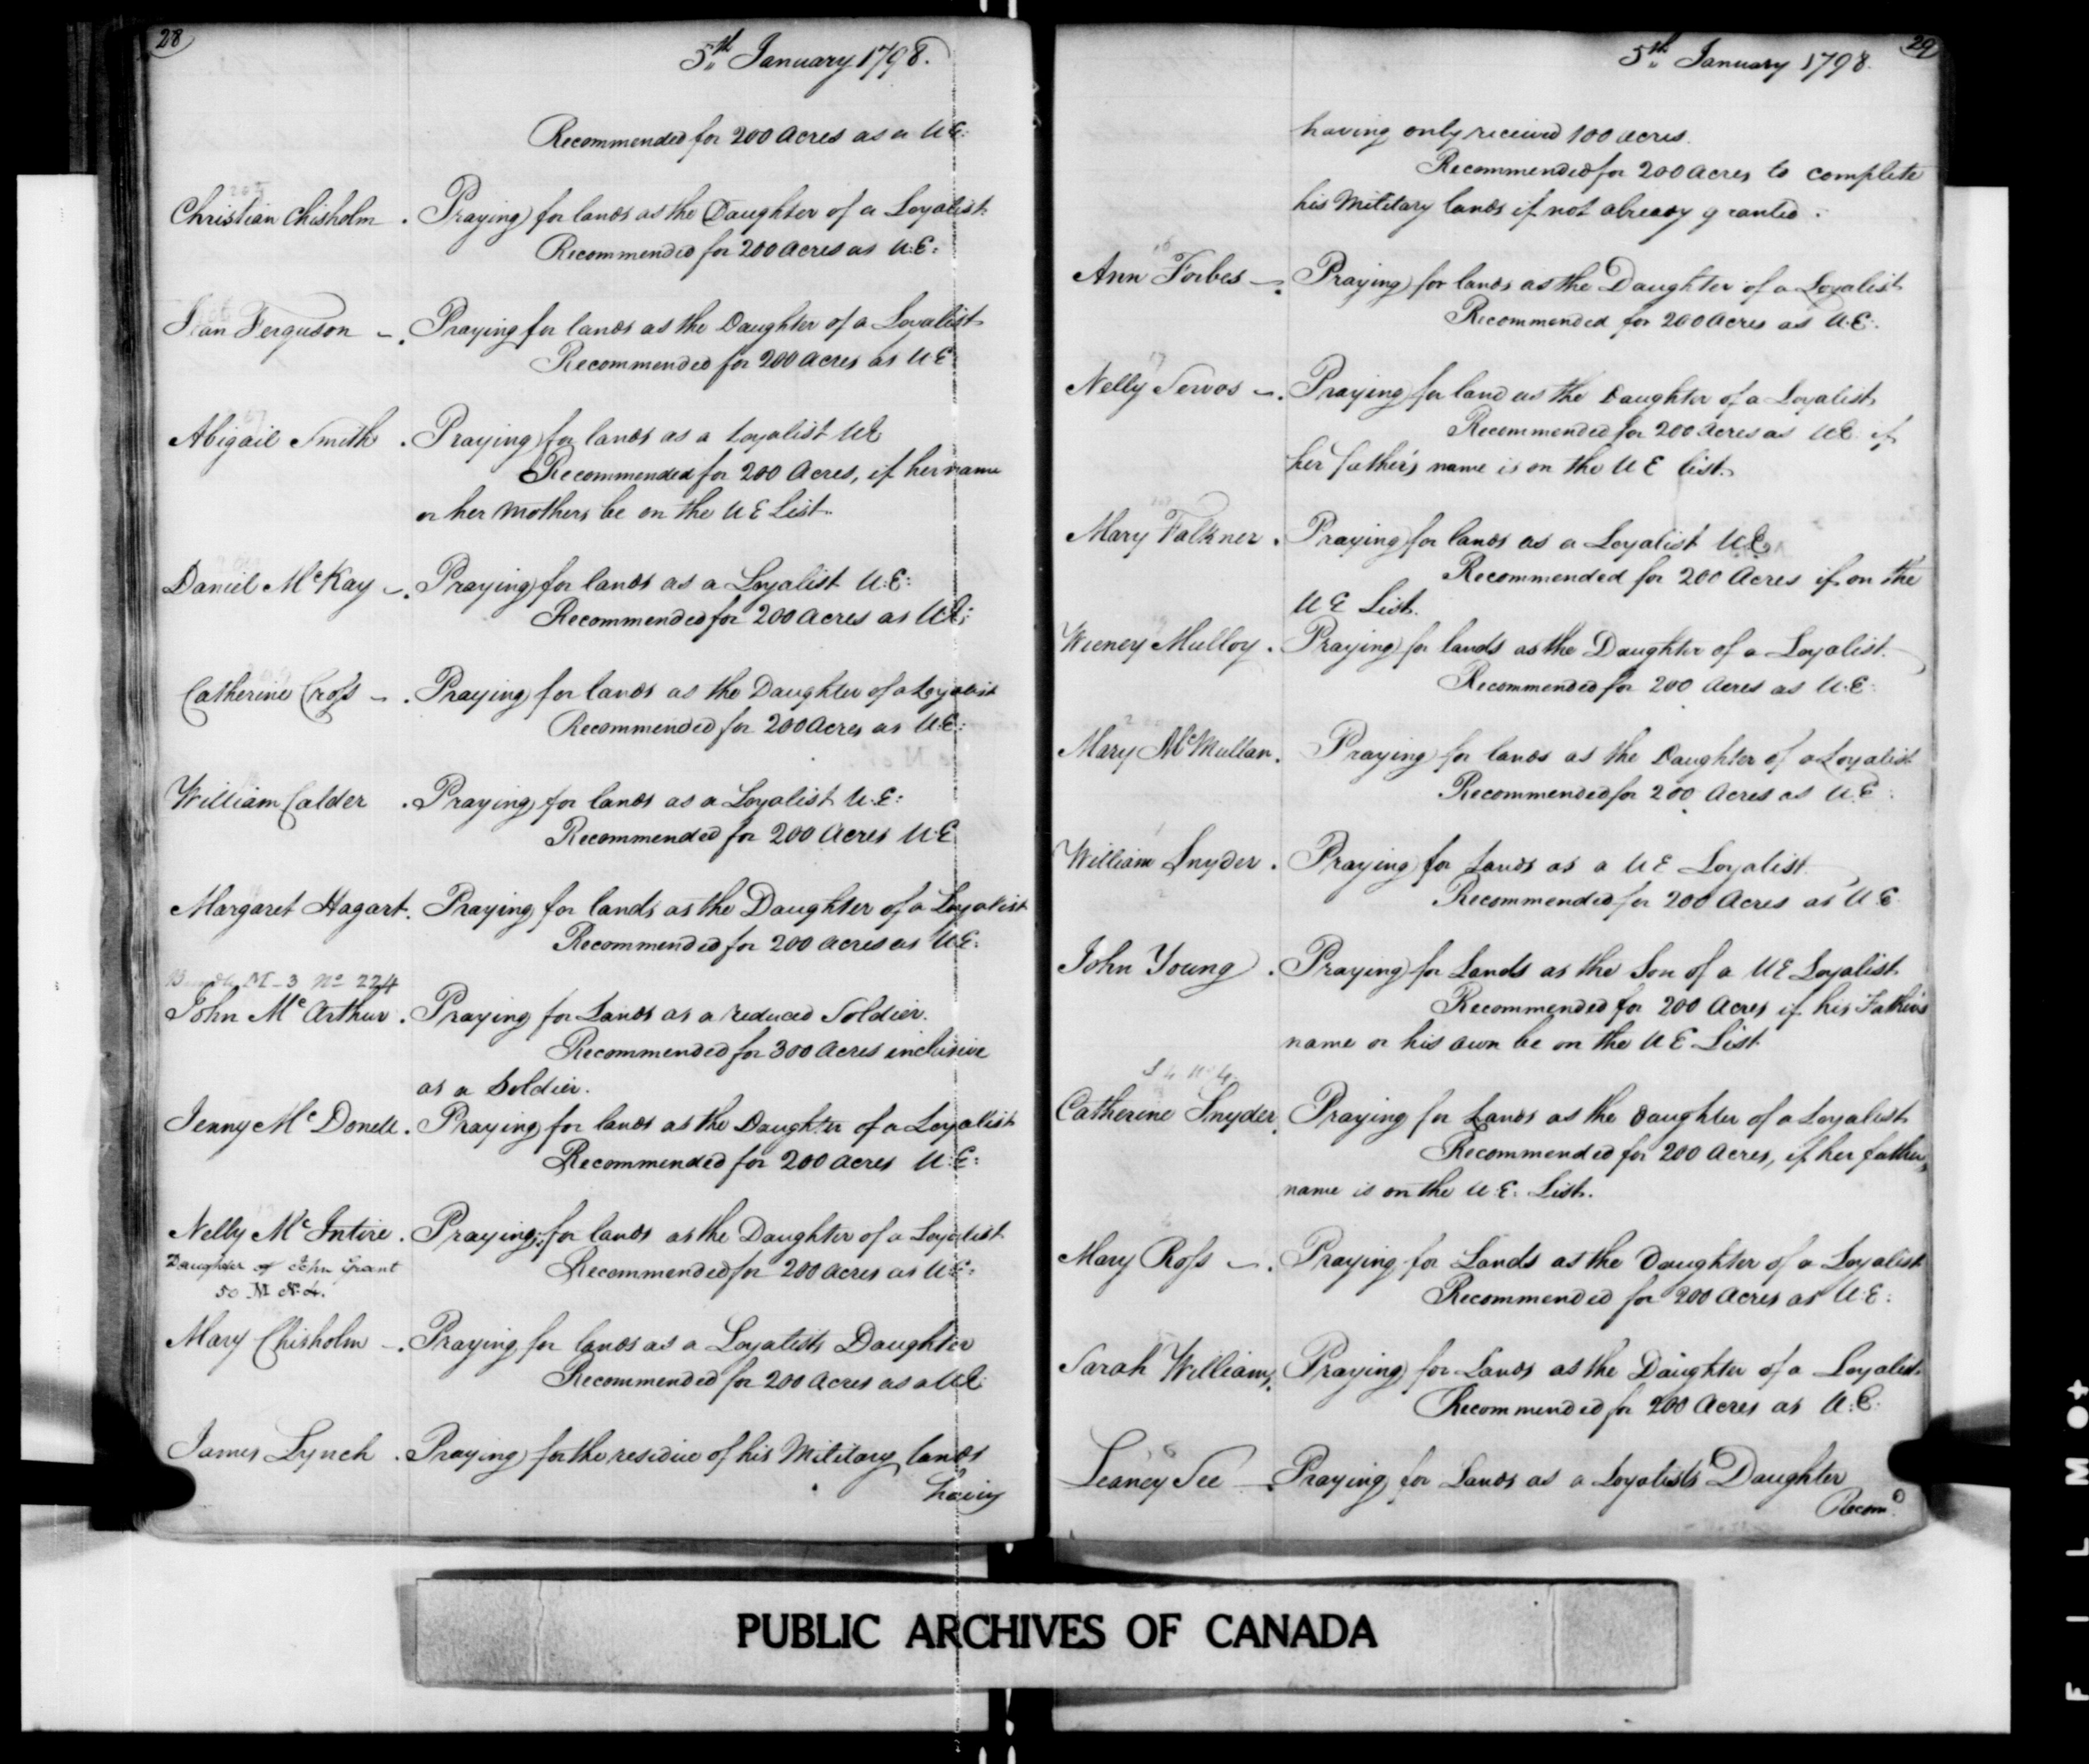 28
5th January 1798.
Recommended for 200 Acres as a U.E:
Christian Chisholm . Praying for lands as the Daughter of a Loyalist.
Recommended for 200 Acres as U:E:
Jean Ferguson -. Praying for lands as the Daughter of a Loyalist
Recommended for 200 Acres as U E
Abigail Smith . Praying for lands as a Loyalist UE
Recommended for 200 Acres, if her name
or her Mothers be on the U E List.
Daniel McKay -. Praying for lands as a Loyalist U:E:
Recommended for 200 Acres as UE:
Catherine Cross -. Praying for lands as the Daughter of a Loyalist
Recommended for 200 Acres as U:E:
William Calder . Praying for lands as a Loyalist U.E:
Recommended for 200 Acres U E
Margaret Hagart. Praying for lands as the Daughter of a Loyalist
Recommended for 200 Acres as U.E:
Bundle M-3 No 224
John McArthur . Praying for Lands as a reduced Soldier.
Recommended for 300 Acres inclusive
as a Soldier.
Jenny McDonell . Praying for lands as the Daughter of a Loyalist
Recommended for 200 Acres U:E:
Nelly McIntire . Praying for lands as the Daughter of a Loyalist
Daughter of John Grant
Recommended for 200 Acres as U:E:
50 M No 4.
Mary Chisholm -. Praying for lands as a Loyalists Daughter
Recommended for 200 Acres as a UE
James Lynch . Praying for the residue of his Military lands
having
29
5th January 1798.
having only received 100 acres.
Recommended for 200 Acres to complete
his Military lands if not already granted.
Ann Forbes -. Praying for lands as the Daughter of a Loyalist
Recommended for 200 Acres as U:E:
Nelly Servos -. Praying for land as the Daughter of a Loyalist
Recommended for 200 Acres as UE if
her father's name is on the U E list.
Mary Falkner . Praying for lands as a Loyalist UE
Recommended for 200 Acres if on the
U E List.
Weeney Mulloy . Praying for lands as the Daughter of a Loyalist.
Recommended for 200 Acres as U:E:
Mary McMullan . Praying for lands as the Daughter of a Loyalist
Recommended for 200 Acres as U.E:
William Snyder . Praying for Lands as a U E Loyalist
Recommended for 200 Acres as U E
John Young . Praying for Lands as the Son of a UE Loyalist
Recommended for 200 Acres if his Father's
name or his own be on the U E List
S 4 No 4.
Catherine Snyder. Praying for Lands as the Daughter of a Loyalist
Recommended for 200 Acres, if her fathers
name is on the U.E: List.
Mary Ross -. Praying for Lands as the Daughter of a Loyalist
Recommended for 200 Acres as U.E:
Sarah Williams. Praying for Lands as the Daughter of a Loyalist
Recommended for 200 Acres as U.E:
Leaney See -. Praying for Lands as a Loyalists Daughter
Recomd
PUBLIC ARCHIVES OF CANADA